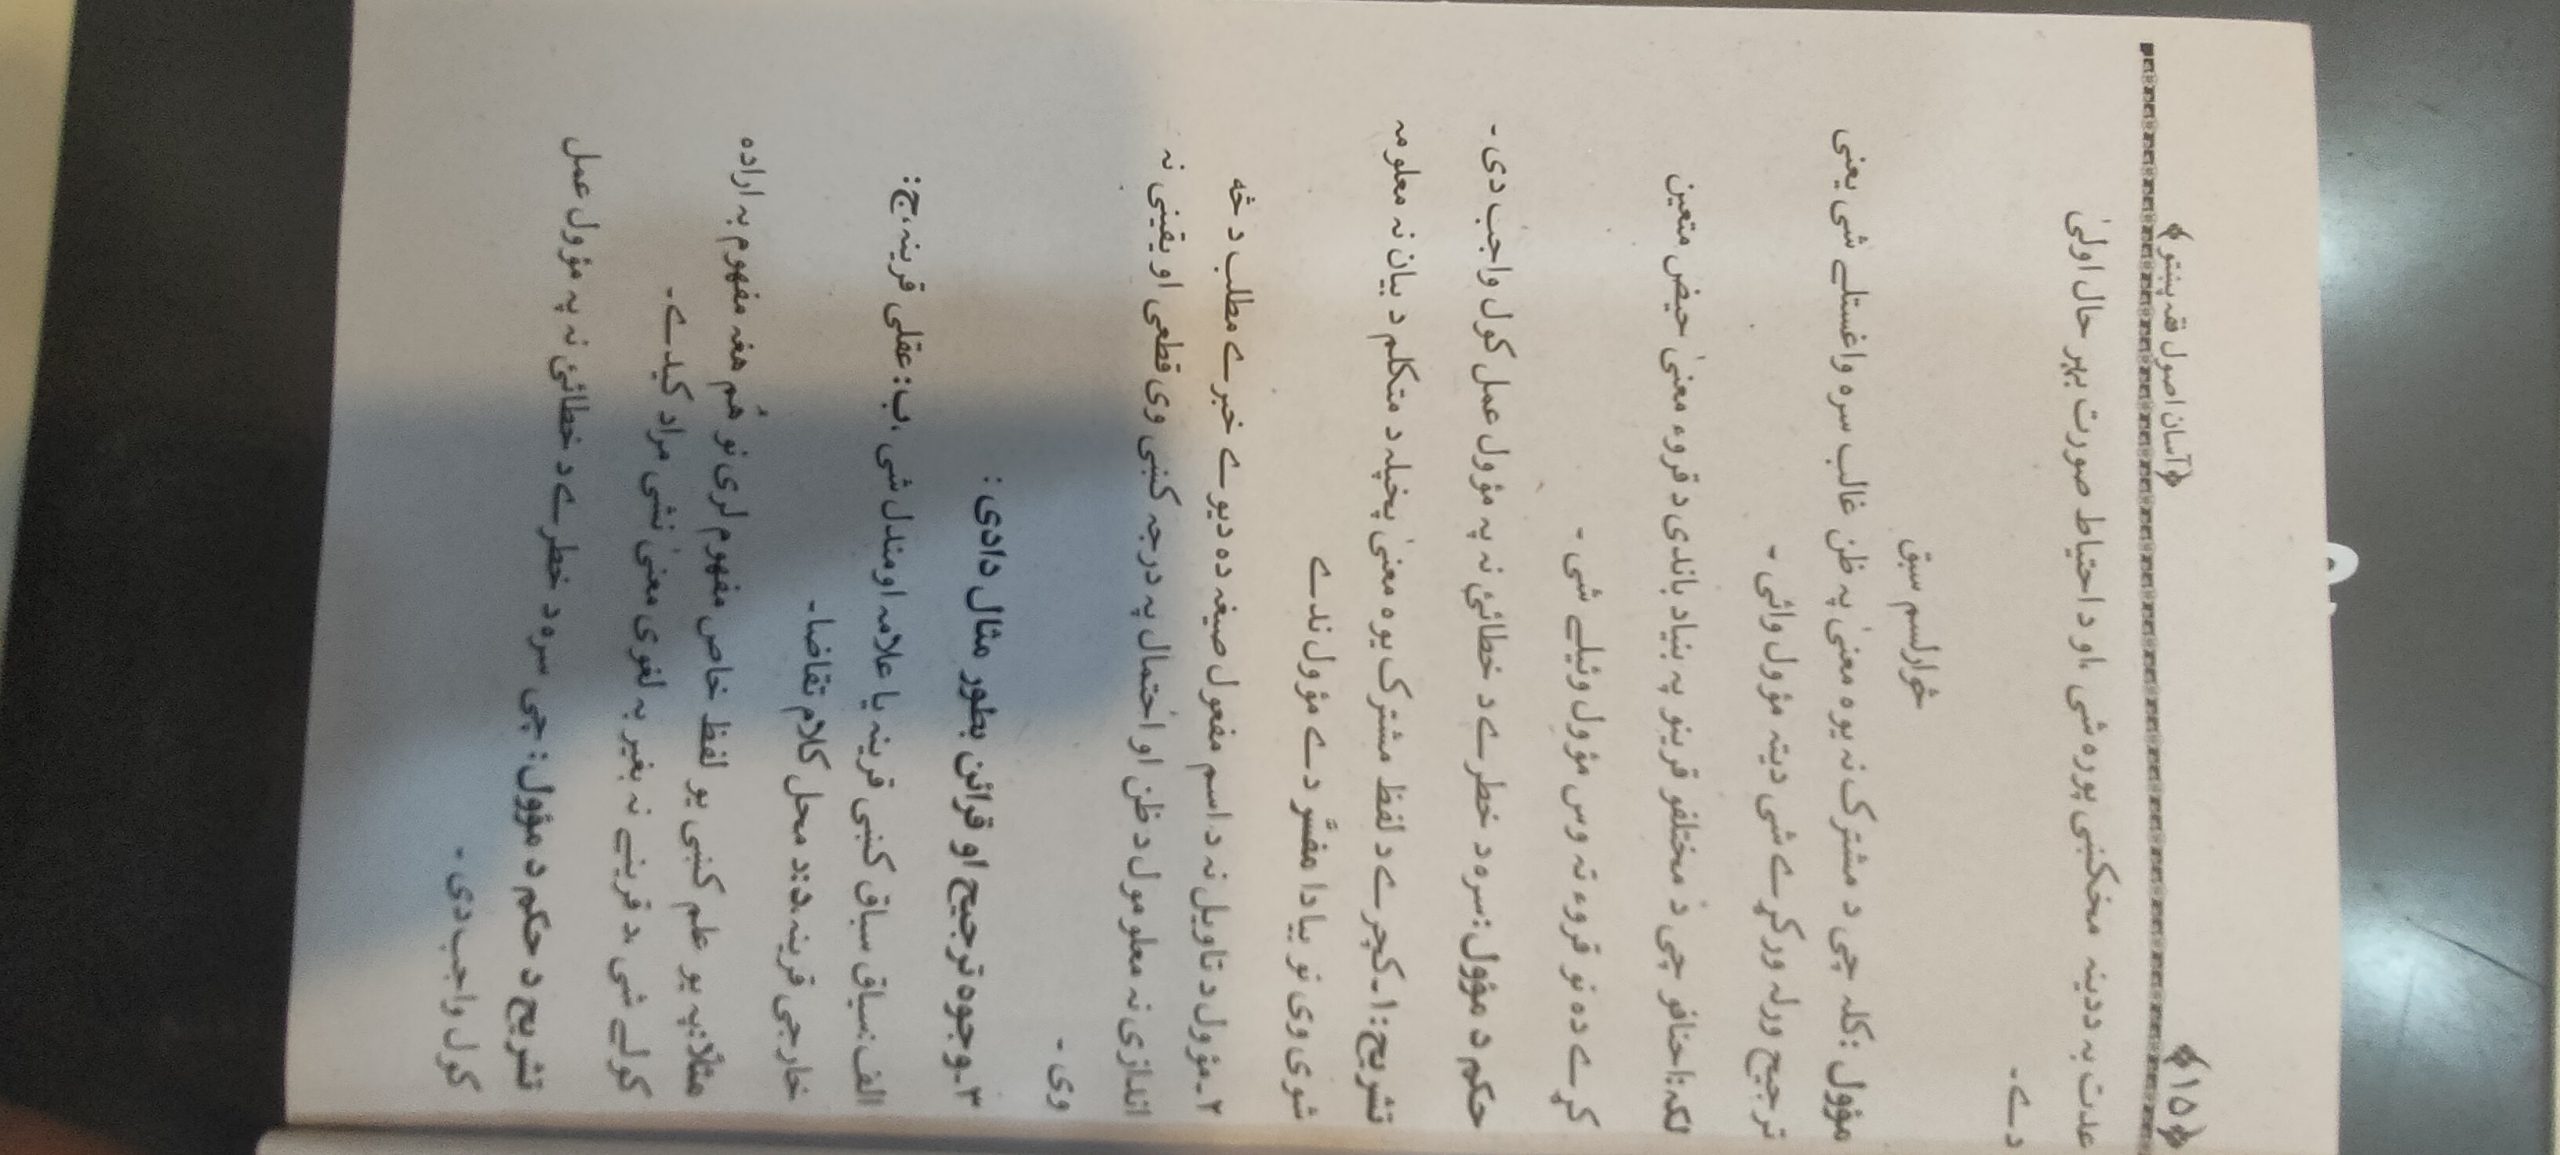 ﴿آسان اصول فقہ پښتو﴾ ﴿۱۵﴾
عدت بہ ددینہ مخکښې پورہ شی ،او د احتیاط صورت بہر حال اولیٰ
دے۔
څوارلسم سبق
مؤول :کلہ چی د مشترک نہ یوہ معنیٰ پہ ظن غالب سرہ واغستلے شی یعنی
ترجیح ورلہ ورکړے شی دیتہ مؤول وائی ۔
لکہ:احنافو چی دَ مختلفو قرینو پہ بنیاد باندی د قروء معنیٰ حیض متعین
کړے دہ نو قروء تہ وس مؤول وئیلے شی ۔
حکم د مؤول:سرہ د خطرے د خطائئ نہ پہ مؤول عمل کول واجب دی ۔
تشریح:۱۔کچرے د لفظ مشترک یوہ معنیٰ پخپلہ د متکلم د بیان نہ معلومہ
شوی وی نو بیا دا مفسَّر دے مؤول ندے
۲۔مؤول د تاویل نہ د اسم مفعول صیغہ دہ دیوے خبرے مطلب د څہ
اندازی نہ معلومول د ظن او احتمال پہ درجہ کښې وی قطعی او یقینی نہ
وی ۔
۳۔وجوہ ترجیح او قرائن بطور مثال دادی :
الف:سیاق سباق کښې قرینہ یا علامہ اومندل شی ،ب:عقلی قرینہ،ج:
خارجی قرینہ،د:د محل کلام تقاضا۔
مثلًا:پہ یو علم کښې یو لفظ خاص مفہوم لری نو ھُم ھغہ مفہوم بہ ارادہ
کولے شی ،د قرینے نہ بغیر بہ لغوی معنیٰ نشی مراد کیدے۔
تشریح د حکم د مؤول: چی سرہ د خطرے د خطائئ نہ پہ مؤول عمل
کول واجب دی ۔